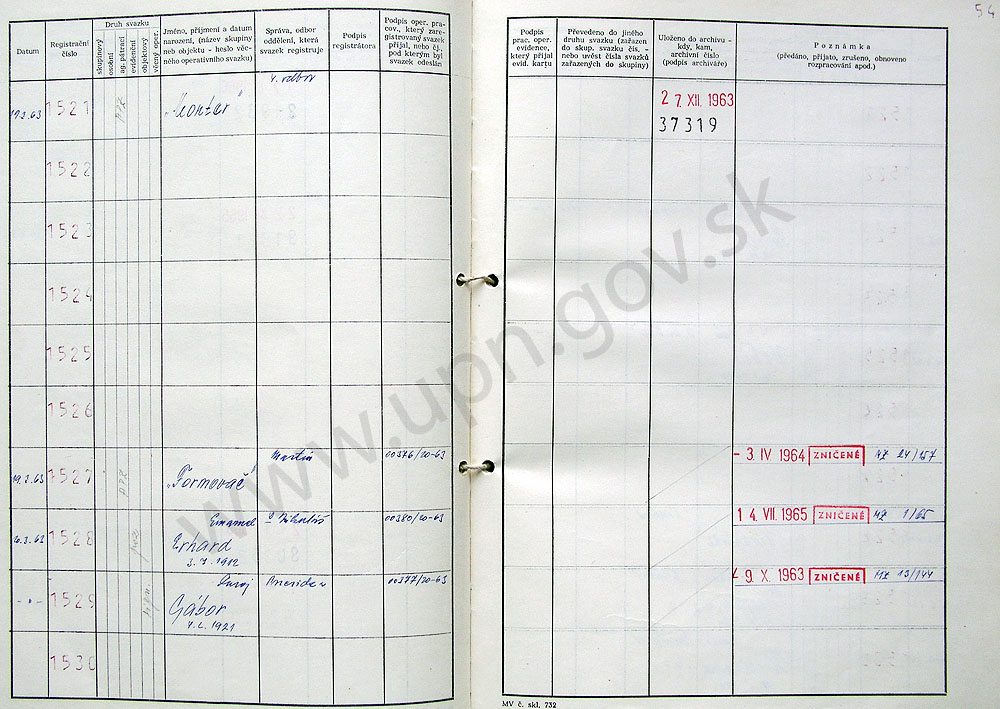 54
Datum
Registrační číslo
Druh svazku
skupinový
osobní
ag. pátrací
evidenční
objektový
věcný oper.
Jméno, příjmení a datum
narození, (název skupiny
neb objektu - heslo věc-
ného operativního svazku)
Správa, odbor
oddělení, která
svazek registruje
Podpis
registrátora
Podpis oper. pra-
cov., který zare-
gistrovaný svazek
přijal, nebo čj.,
pod kterým byl
svazek odeslán
Podpis
prac. oper.
evidence,
který přijal
evid. kartu
Převedeno do jiného
druhu svazku (zařazen
do skup. svazku čís. -
nebo uvést čísla svazků
zařazených do skupiny)
Uloženo do archivu -
kdy, kam,
archivní číslo
(podpis archiváře)
Poznámka
(předáno, přijato, zrušeno, obnoveno
rozpracování apod.)
1521
27. XII. 1963
37319
1522
1523
1524
1525
1526
19.3.63 1527 "Formovač" Martin 00376/20-63
- 3. IV 1964 ZNIČENÉ 24/157
1528 Erhard 00380/20-63
3.7.1912
14. VII. 1965 ZNIČENÉ 1/65
1529 Gábor 00377/20-63
1921
9. X. 1963 ZNIČENÉ 13/144
1530
MV č. skl. 732
www.upn.gov.sk